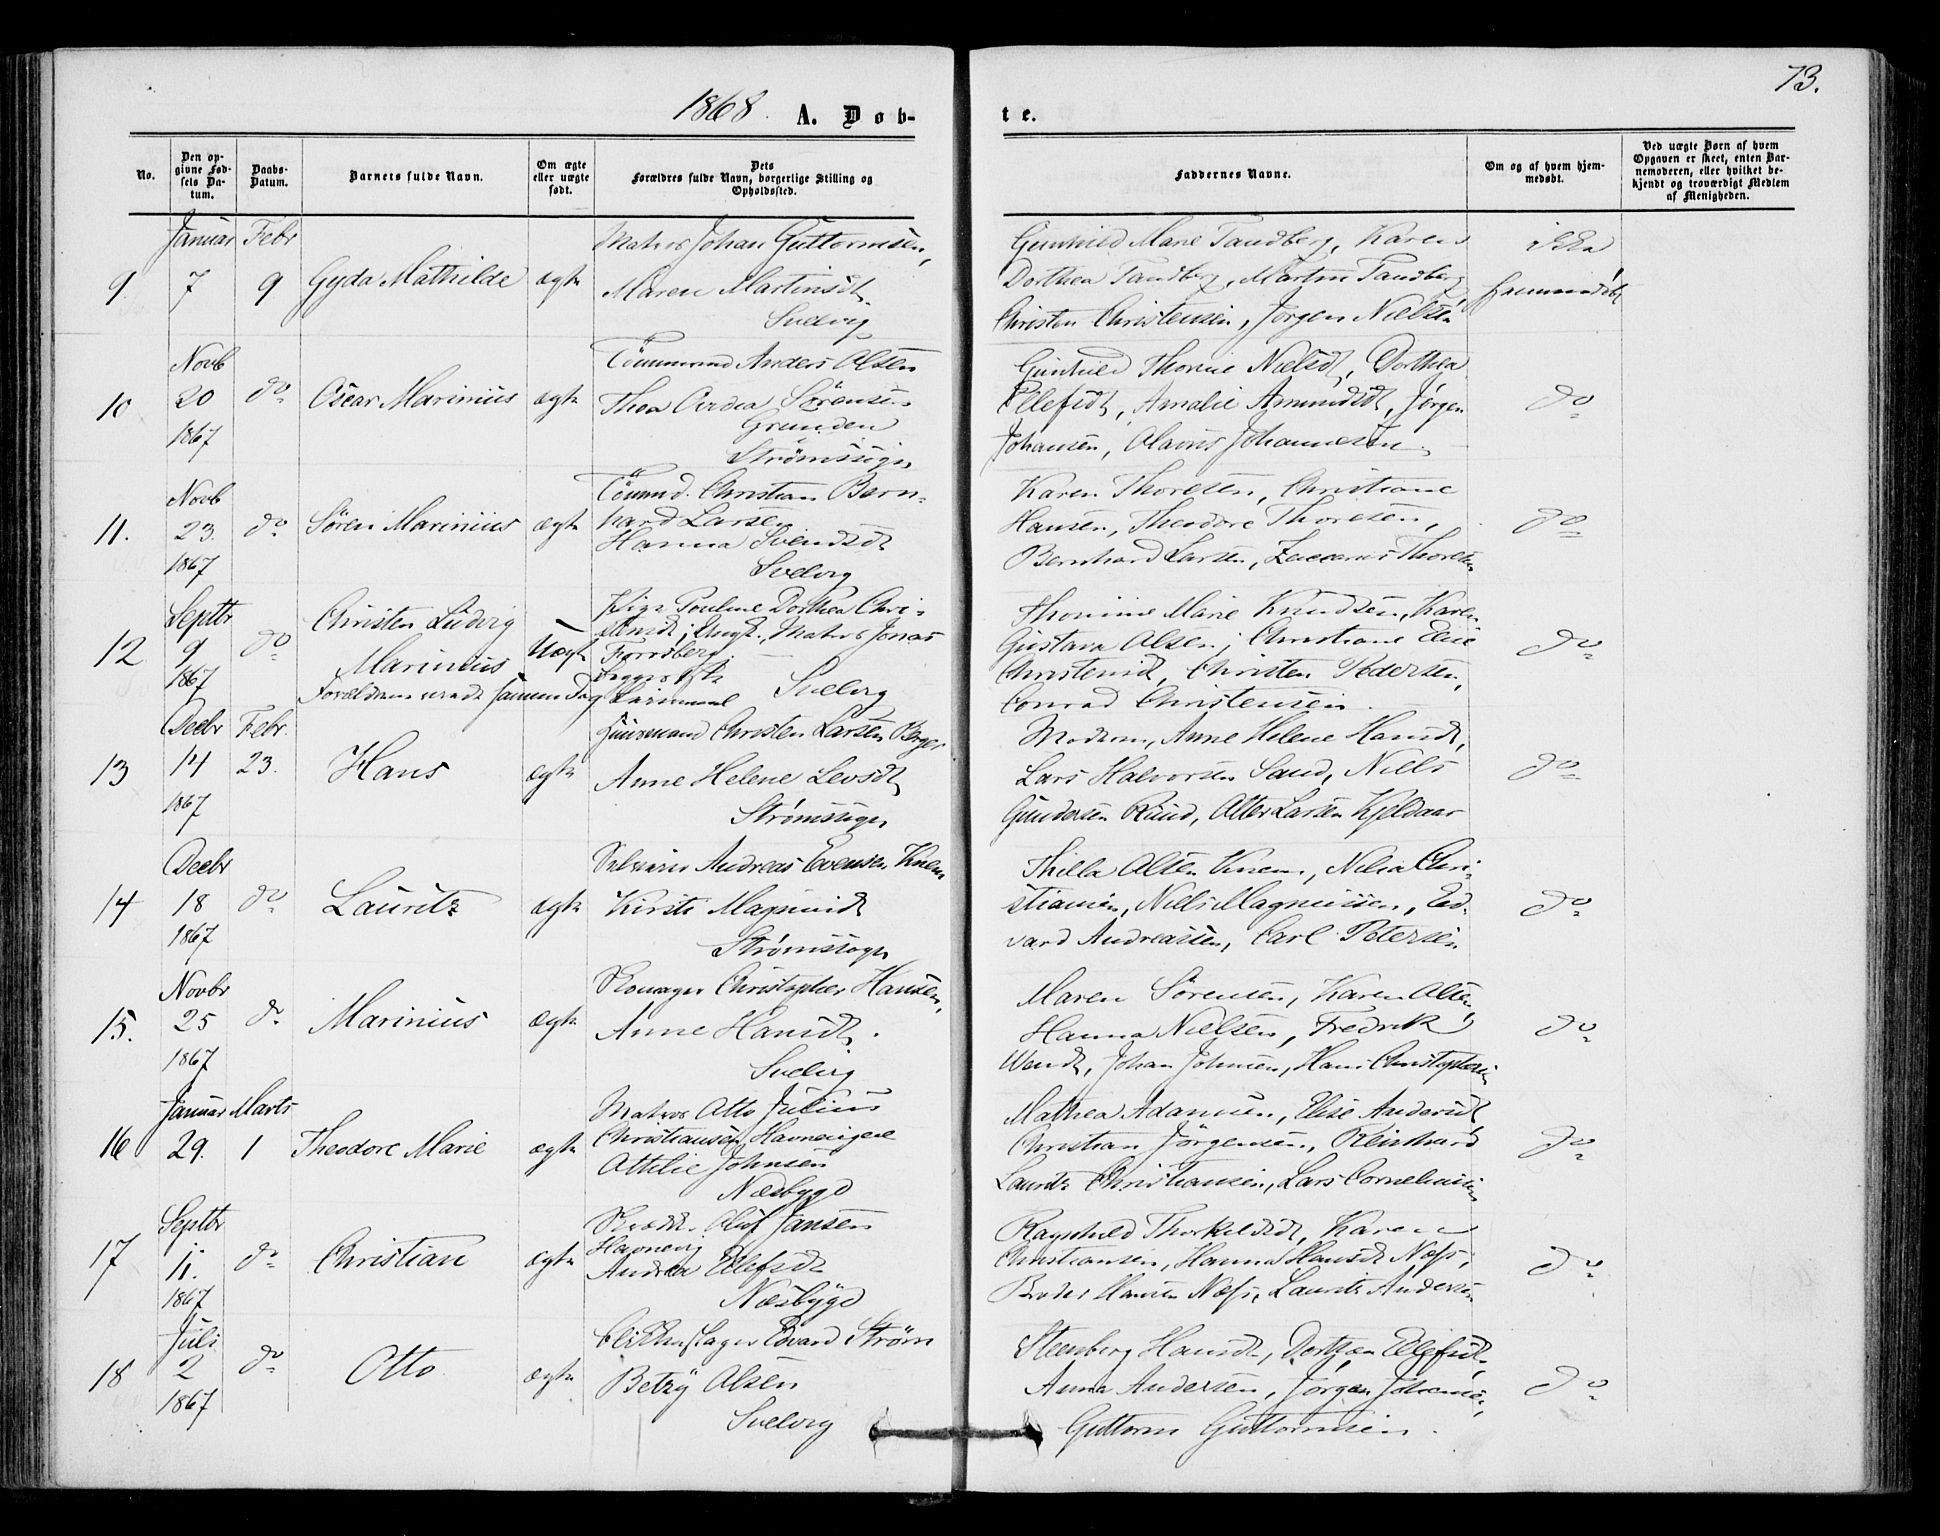 1868. A. Døb-
te. 73.
No.
Den op-
givne Fød-
sels Da-
tum.
Daabs-
Datum.
Barnets fulde Navn.
Om ægte
eller uægte
født.
Dets
Forældres fulde Navn, borgerlige Stilling og
Opholdssted.
Faddernes Navne.
Om og af hvem hjem-
medøbt.
Ved uægte Børn af hvem
Opgaven er skeet, enten Bar-
nemoderen, eller hvilket be-
kjendt og troværdigt Medlem
af Menigheden.
Januar Febr
9 7 9 Gyda Mathilde ægte
Matros Johan Guttormsen,
Maren Martinsdt.
Svelvig
Gunhild Marie Tandberg, Karen
Dorthea Tandberg, Martin Tandberg
Christen Christensen, Jørgen Nielsen
ikke
hjemmedøbt
Novb
10 20 do Oscar Marinius ægte
1867
Tömmermd Anders Olsen
Thea Sørensen
Grunden
Strømssogn
Gunhild Thorine Nielsdt, Dorthea
Ellefsdt, Amalie Amundsdt, Jørgen
Johansen, Olavus Johannesen.
do
Novb
11. 23. do Søren Marinius ægte
1867
Tömmd. Christian Bern-
hard Larsen
Hanna Svendsdt
Svelvig
Karen Thoresen, Christiane
Hansen, Theodore Thoresen,
Bernhard Larsen, Zaccarias Thoresen
do
Septbr
12 9 do Christen Ludvig
Marinius Uægte
1867
Forældrene samme Dag
Pige Pouline Dorthea Chri-
stensdt; Ungk., Matros Jonas
Forrsberg.
Begges 1ste
Leiermaal Svelvig
Thomine Marie Knudsen, Karen
Gustava Olsen, Christiane Elise
Christensd, Christen Pedersen,
Conrad Christensen.
do
Decbr Febr.
13 14 23. Hans ægte
1867
Huusmand Christen Larsen Berger
Anne Helene Levsdt
Strømssogn
Moderen, Anne Helene Hansdt,
Lars Halvorsen Sand, Niels
Gundersen Ruud, Olter Larsen Kjeldaas
do
Decbr
14 18 do Lauritz ægte
1867
Selveier Andreas Evensen Knem
Kirsti Magnusdt
Strømssogn
Thilla Olsen Knem, Nilia Chri-
stiansen, Niels Magnussen, Ed-
vard Andreassen, Carl Petersen
do
Novbr
15. 25 do Marinius ægte
1867
Skomager Christopher Hansen,
Anne Hansdt.
Svelvig
Maren Sørensen, Karen Olsen,
Hanna Nielsen, Fredrik
Wendt, Johan Johnsen, Hans Christophersen
do
Januar Marts
16 29. 1 Theodore Marie ægte
Matros Otto Julius
Christiansen, Havneeigene
Attilie Johnsen
Næsbygd
Mathea Adamsen, Elise Andersdt,
Christian Jörgensen, Reinhard
Lauritz Christiansen, Lars Corneliussen
do
Septbr
17 11. do Christian ægte
1867
Skrædd. Oluf Jansen
Havnevig
Andrea Ellefsdt
Næsbygd
Ragnhild Thorkildsdt, Karen
Christiansen, Hanna Hansdt Næss,
Broder Hansen Næss, Lauritz Andersen
do
Juli
18 2 do Otto ægte
1867
Blikkenslager Edvard Strøm
Betzy Olsen
Svelvig
Steenberg Hansdt, Dorthea Ellefsdt,
Anna Andersen, Jørgen Johanne,
Guttorm Guttormsen.
do